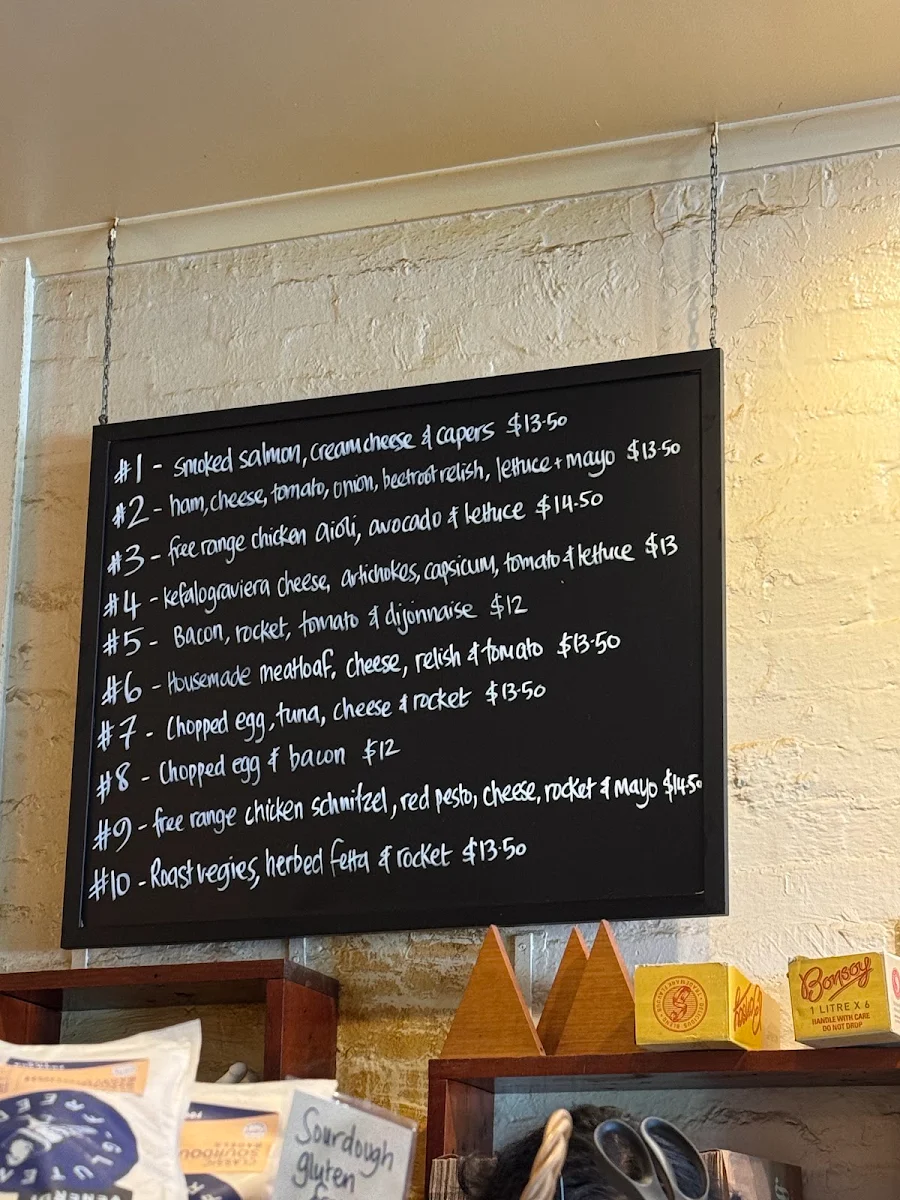 #1 - smoked salmon, creamcheese & capers $13.50
#2 - ham, cheese, tomato, onion, beetroot relish, lettuce + mayo $13.50
#3 - free range chicken aioli, avocado & lettuce $14.50
#4 - kefalograviera cheese, artichokes, capsicum, tomato & lettuce $13
#5 - Bacon, rocket, tomato & dijonnaise $12
#6 - Housemade meatloaf, cheese, relish & tomato $13.50
#7 - Chopped egg, tuna, cheese & rocket $13.50
#8 - Chopped egg & bacon $12
#9 - free range chicken schnitzel, red pesto, cheese, rocket & mayo $14.50
#10 - Roast vegies, herbed fetta & rocket $13.50
Bonsoy
1 LITRE X 6
HANDLE WITH CARE
DO NOT DROP
Sourdough
gluten